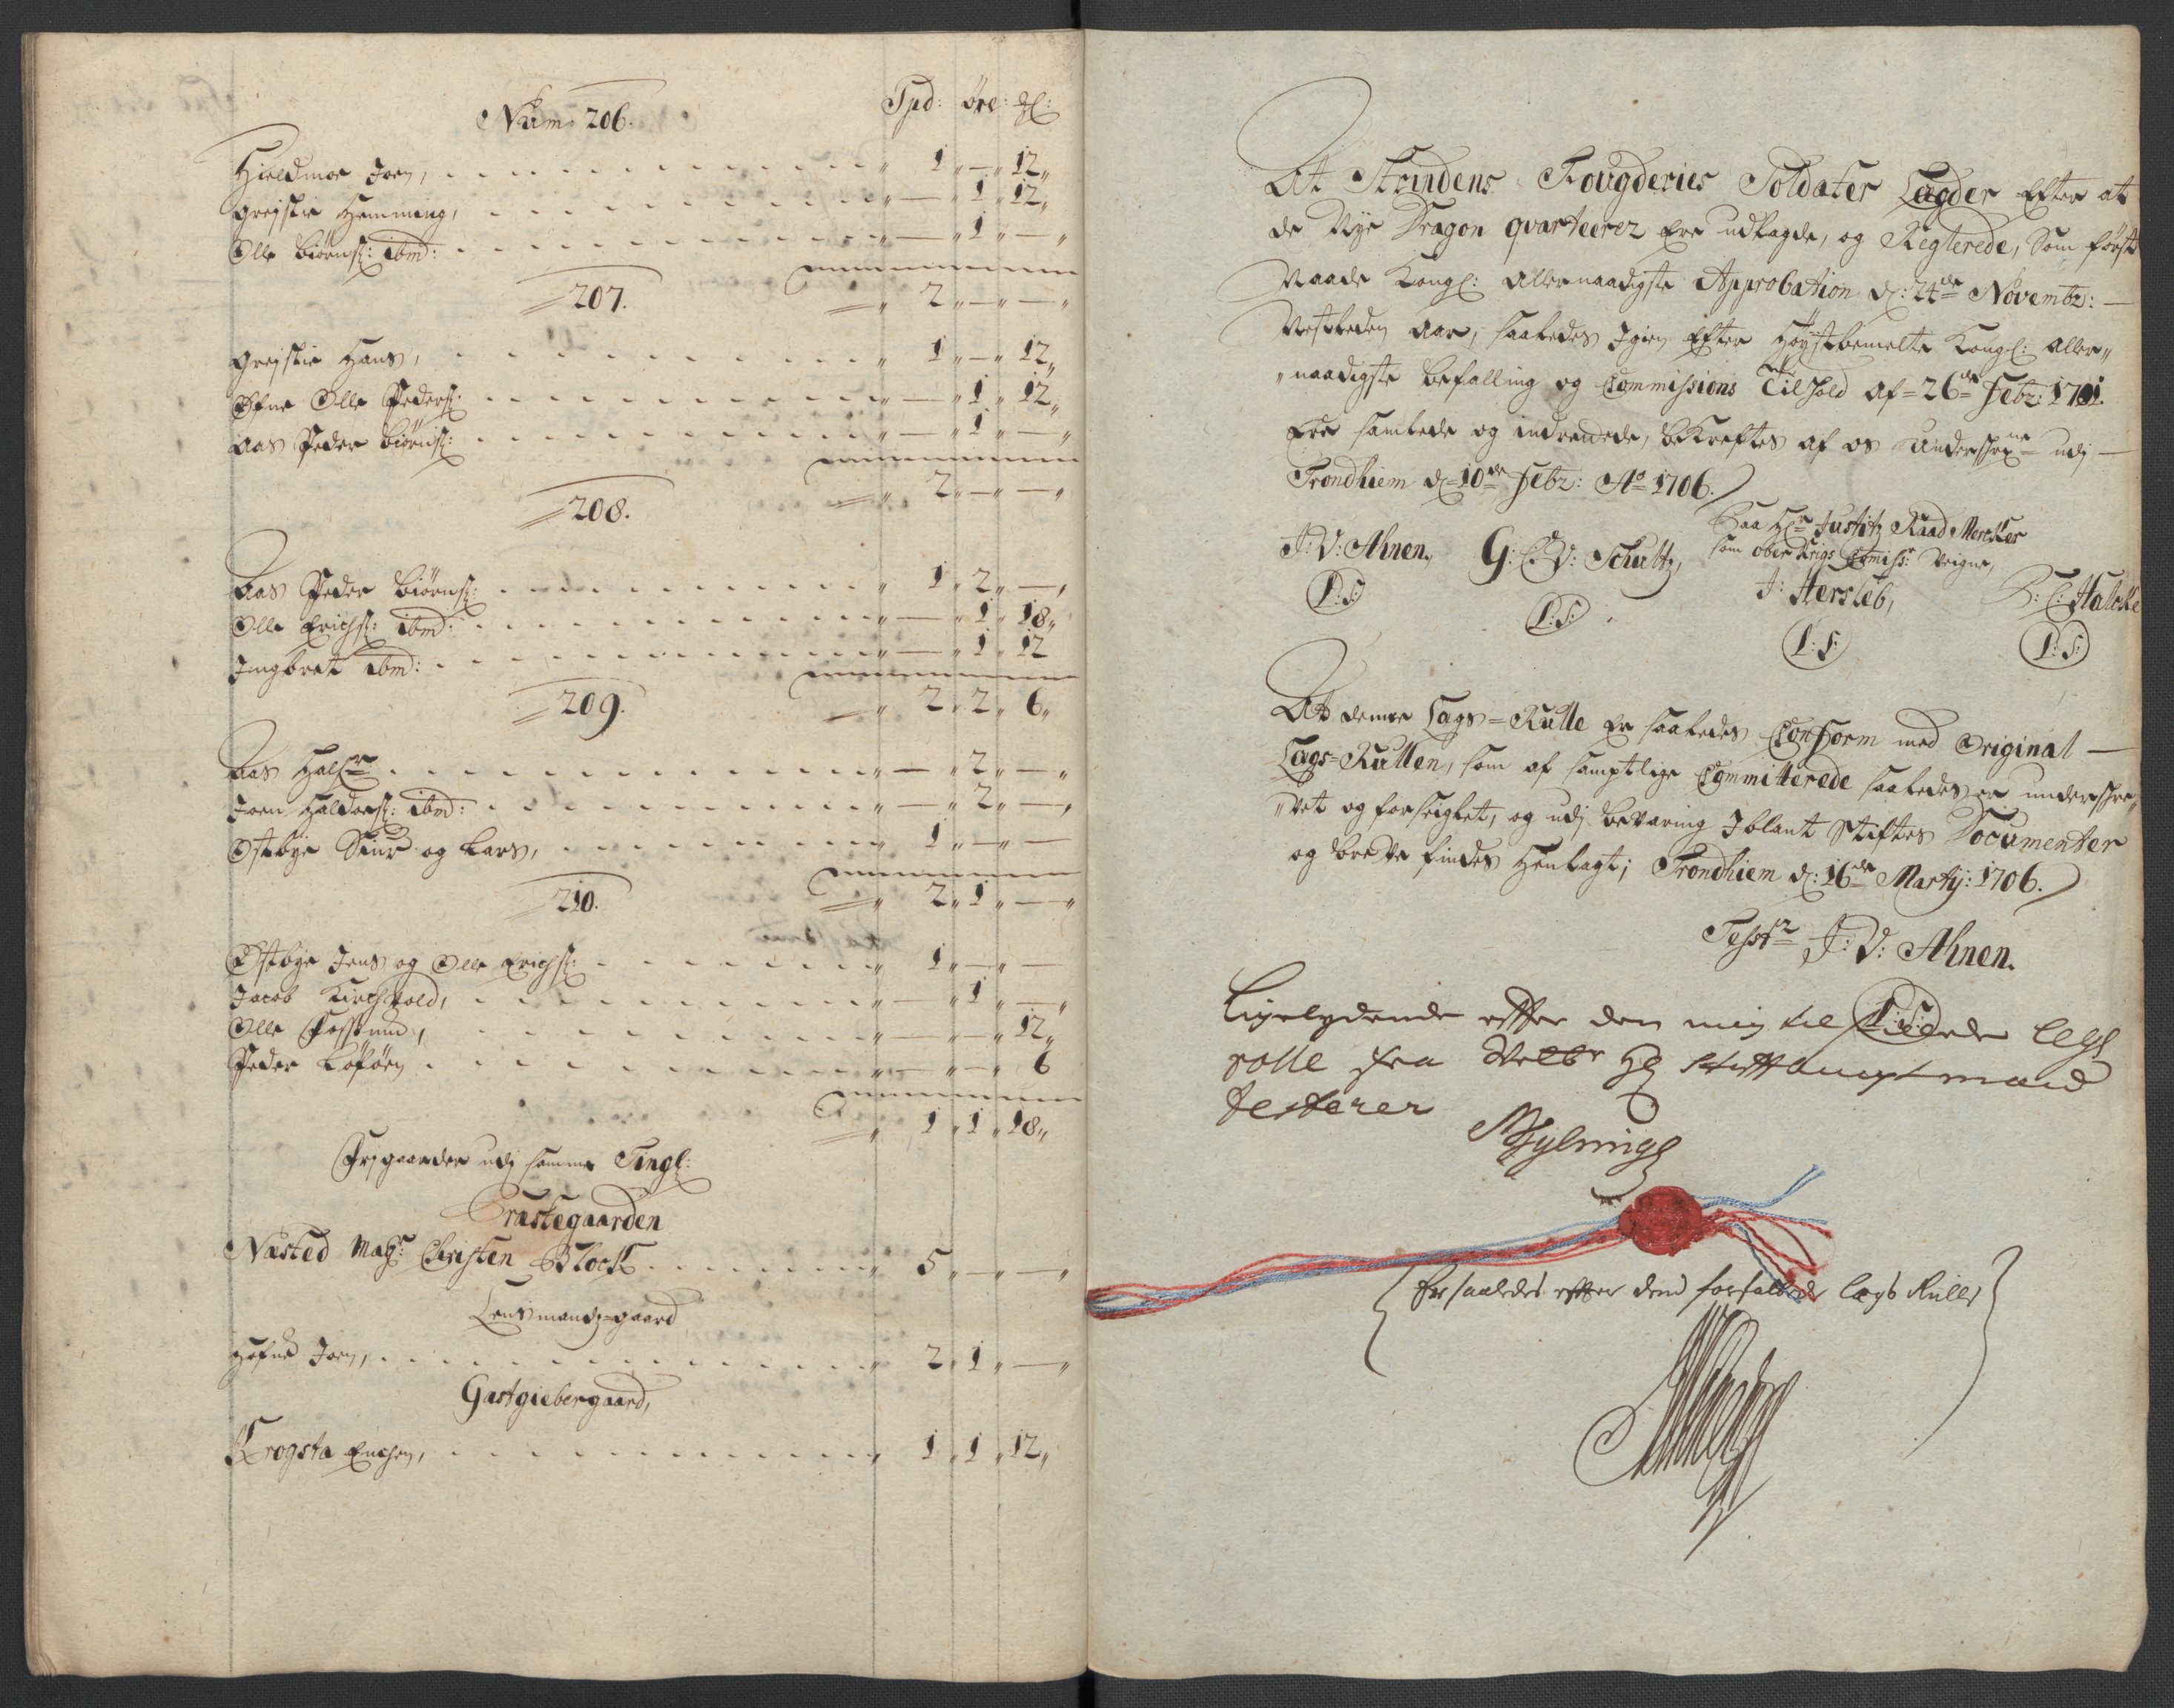 Num: 206. Spd: öre: Ɉl:
Hieldmoe Joen, 1 „ — „ 12 „
Grejslie Hemming, — „ 1 „ 12 „
Olle Biörnsl: ibm̄: — „ 1 „ — „
207. 2 „ — „ — „
Grejslie Hans, 1 „ — „ 12 „
Øfne Olle Pedersl: — „ 1 „ 12 „
Aas Peder Biörnsl: — „ 1 „ — „
208. 2 „ — „ — „
Aas Peder Biörnsl: 1 „ 2 „ — „
Olle Erichsl: ibm̄: — „ 1 „ 18 „
Ingbret ibm̄: — „ 1 „ 12
209. 2 „ 2 „ 6 „
Aas — „ 2 „ — „
Joen Haldorsl: ibm̄: — „ 2 „ — „
Østbye Siur og Lars, 1 „ — „ —
210. 2 „ 1 „ — „
Østbye Jens og Olle Erichsl: 1 „ — „ —
Jacob Kirchvold, — „ 1 „ — „
Olle Fossmo, — „ — „ 12 „
Peder — „ — „ 6
1 „ 1 „ 18 „
Frjgaarder udj samme Tingl:
Præstegaarden
Næsted Mag:r Christen Block 5 „ — „ — „
Lensmandz-gaard
Hofne Joen, 2 „ 1 „ — „
Gastgiebergaard,
Krogsta Enchen, 1 „ 1 „ 12 „
At Strindens Fougderies Soldater Lægder Efter at
de Nye Dragon quarteerer Ere udlagde, og Reglerede, Som först
Naade Kongl: Allernaadigste Approbation d: 24de Novembr: —
Nestleden Aar, saaledes Igien Efter Høystbemelte Kongl: Aller„
„naadigste befalling og Commissions Tilhold af 26de Febr: 1701.
Ere samlede og indrettede, bekreftes af os underschrne udj —
Trondhiem d 10de Febr: Ao 1706.
Paa Hr Justitz Raad Merckes
som ober Krigs Comiss: Veigne,
J: V: Ahnen, G: C: V: Schultz, J: Hersleb, B: C: Halcke
L:S: L:S: L:S: L:S:
At denne Lags-Rulle Er saaledes Conform med Original —
Lags-Rullen, som af samptlige Committerede saaledes er underschre„
„vet og forseiglet, og udj bevaring Iblant Stiftes Documenter
og breve findes Henlagt; Trondhiem d: 16de Martij: 1706.
Testr J: V: Ahnen.
L:S:
Ligelydende efter den mig til stillede legs
rolle fra Welbr Hr Stiftbempt mand
testerer
Er saaledes efter dend forfattede lægs Rulle